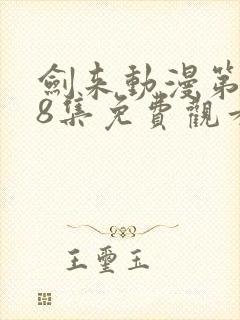 劍来動漫第
8集免費觀看
王璽玉